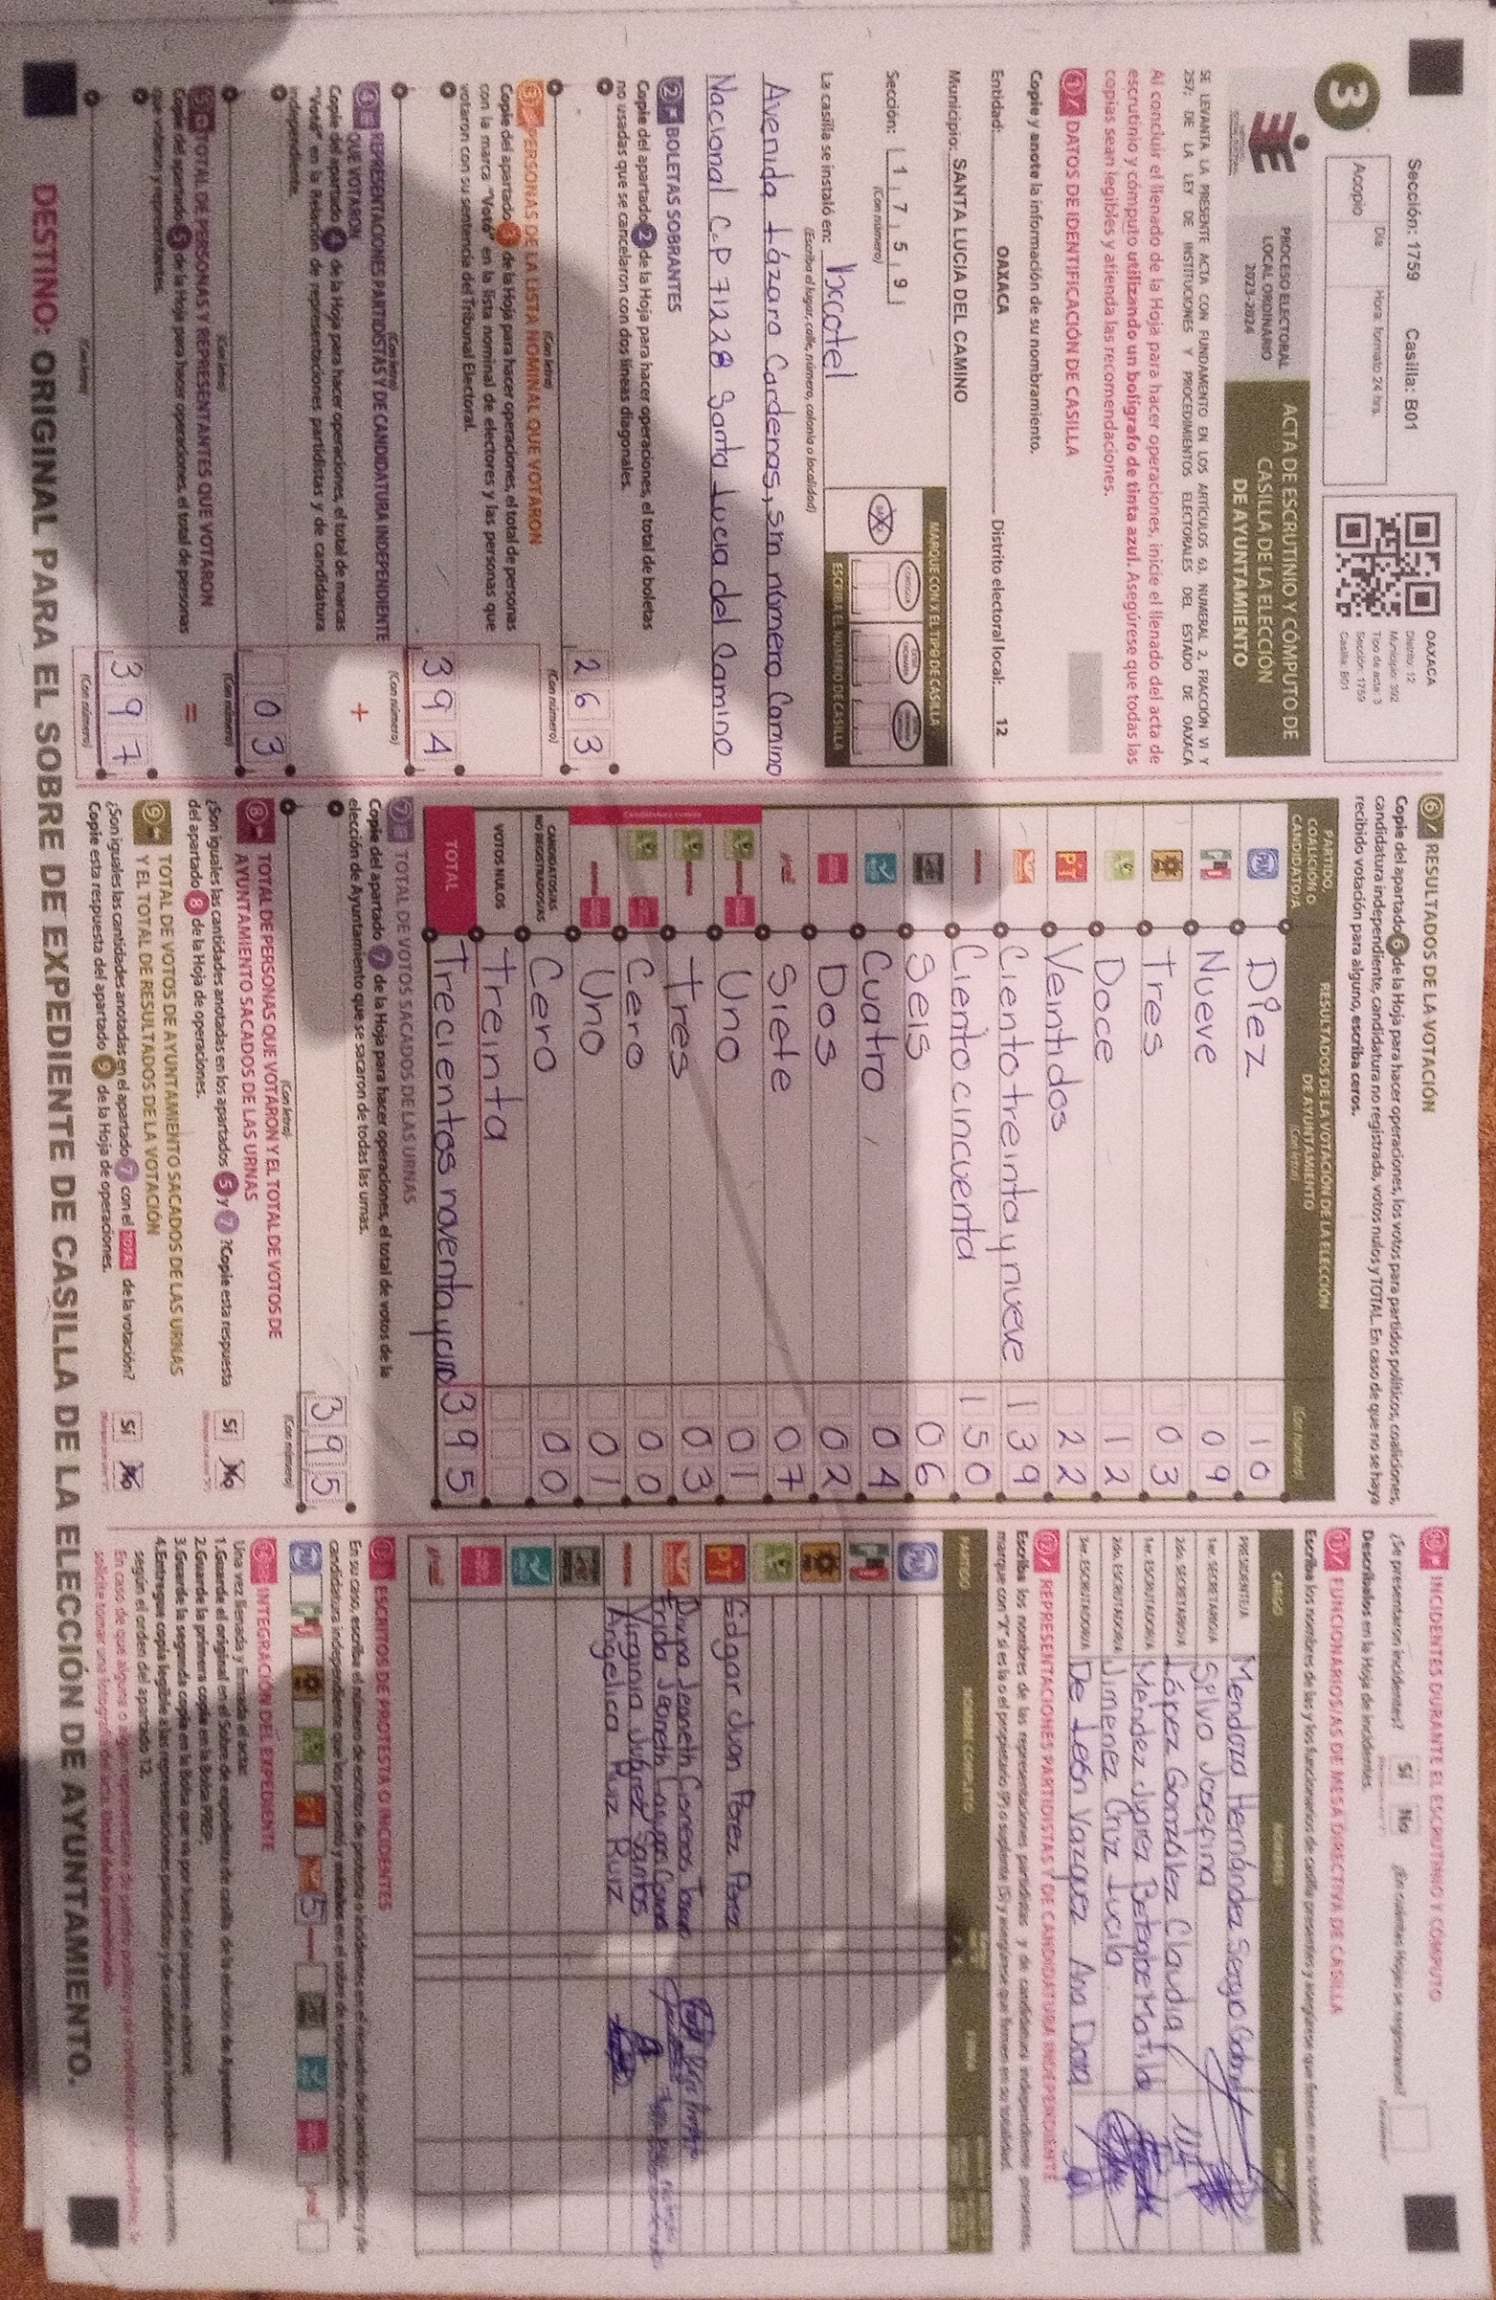 Sección: 1759 Casilla: B01
3
Acopio
Día
Hora: formato 24 hrs.
OAXACA
Distrito: 12
Tipo de acta: 3
Sección: 1759
Casilla: B01
PROCESO ELECTORAL
LOCAL ORDINARIO
2023-2024
ACTA DE ESCRUTINIO Y CÓMPUTO DE
CASILLA DE LA ELECCIÓN
DE AYUNTAMIENTO
SE LEVANTA LA PRESENTE ACTA CON FUNDAMENTO EN LOS ARTÍCULOS 63, NUMERAL 2, FRACCIÓN VI Y
257; DE LA LEY DE INSTITUCIONES Y PROCEDIMIENTOS ELECTORALES DEL ESTADO DE OAXACA
Al concluir el llenado de la Hoja para hacer operaciones, inicie el llenado del acta de
escrutinio y cómputo utilizando un bolígrafo de tinta azul. Asegúrese que todas las
copias sean legibles y atienda las recomendaciones.
1 DATOS DE IDENTIFICACIÓN DE CASILLA
Copie y anote la información de su nombramiento.
Entidad: OAXACA Distrito electoral local: 12
Municipio: SANTA LUCIA DEL CAMINO
Sección: 1 7 5 9
(Con número)
MARQUE CON X EL TIPO DE CASILLA
ESCRIBA EL NÚMERO DE CASILLA
La casilla se instaló en:
(Escriba el lugar, calle, número, colonia o localidad)
Avenida Lázaro Cardenas, sin número Camino
Nacional C.P 71228 Santa Lucia del Camino
2 BOLETAS SOBRANTES
Copie del apartado 2 de la Hoja para hacer operaciones, el total de boletas
no usadas que se cancelaron con dos líneas diagonales.
263
(Con letra) (Con número)
3 PERSONAS DE LA LISTA NOMINAL QUE VOTARON
Copie del apartado 3 de la Hoja para hacer operaciones, el total de personas
con la marca "Votó" en la lista nominal de electores y las personas que
votaron con su sentencia del Tribunal Electoral.
394
(Con letra) (Con número)
4 REPRESENTACIONES PARTIDISTAS Y DE CANDIDATURA INDEPENDIENTE
QUE VOTARON
+
Copie del apartado 4 de la Hoja para hacer operaciones, el total de marcas
"Votó" en la Relación de representaciones partidistas y de candidatura
independiente.
03
(Con letra) (Con número)
5 TOTAL DE PERSONAS Y REPRESENTANTES QUE VOTARON
=
Copie del apartado 5 de la Hoja para hacer operaciones, el total de personas
que votaron y representantes.
397
(Con letra) (Con número)
6 RESULTADOS DE LA VOTACIÓN
Copie del apartado 6 de la Hoja para hacer operaciones, los votos para partidos políticos, coaliciones,
candidatura independiente, candidatura no registrada, votos nulos y TOTAL. En caso de que no se haya
recibido votación para alguno, escriba ceros.
PARTIDO, COALICIÓN O CANDIDATO/A
RESULTADOS DE LA VOTACIÓN DE LA ELECCIÓN
DE AYUNTAMIENTO
(Con letra) (Con número)
PAN Diez 10
Nueve 09
Tres 03
Doce 12
PT Veintidos 22
Ciento treinta y nueve 139
Ciento cincuenta 150
Seis 06
Cuatro 04
Dos 02
Siete 07
Uno 01
tres 03
Cero 00
Uno 01
CANDIDATOS/AS
NO REGISTRADOS/AS
Cero 00
VOTOS NULOS Treinta
TOTAL 395
7 TOTAL DE VOTOS SACADOS DE LAS URNAS
Copie del apartado 7 de la Hoja para hacer operaciones, el total de votos de la
elección de Ayuntamiento que se sacaron de todas las urnas.
395
(Con letra) (Con número)
8 TOTAL DE PERSONAS QUE VOTARON Y EL TOTAL DE VOTOS DE
AYUNTAMIENTO SACADOS DE LAS URNAS
¿Son iguales las cantidades anotadas en los apartados 5 y 7 ?Copie esta respuesta
del apartado 8 de la Hoja de operaciones.
Sí No
9 TOTAL DE VOTOS DE AYUNTAMIENTO SACADOS DE LAS URNAS
Y EL TOTAL DE RESULTADOS DE LA VOTACIÓN
¿Son iguales las cantidades anotadas en el apartado 7 con el TOTAL de la votación?
Copie esta respuesta del apartado 9 de la Hoja de operaciones.
Sí No
10 INCIDENTES DURANTE EL ESCRUTINIO Y CÓMPUTO
¿Se presentaron incidentes? Sí No
Descríbalos en la Hoja de incidentes.
11 FUNCIONARIOS/AS DE MESA DIRECTIVA DE CASILLA
Escriba los nombres de las y los funcionarios de casilla presentes y asegúrese que firmen en su totalidad.
CARGO
PRESIDENTE/A Mendoza Hernández Sergio
1er. SECRETARIO/A Silva Josefina
2do. SECRETARIO/A López González Claudia
1er. ESCRUTADOR/A
2do. ESCRUTADOR/A Jimenez Cruz Lucila
3er. ESCRUTADOR/A De León Vazquez Ana
12 REPRESENTACIONES PARTIDISTAS Y DE CANDIDATURA INDEPENDIENTE
Escriba los nombres de las representaciones partidistas y de candidatura independiente presentes,
marque con "X" si es la o el propietario (P) o suplente (S) y asegúrese que firmen en su totalidad.
PARTIDO NOMBRE COMPLETO
PAN
PT Edgar Juan Pérez Pérez
Virginia Juárez Santos
Angelica Ruiz Ruiz
13 ESCRITOS DE PROTESTA O INCIDENTES
En su caso, escriba el número de escritos de protesta o incidentes en el recuadro del partido político y de
candidatura independiente que los presentó y métalos en el sobre de expediente correspondiente.
PAN
5
INTEGRACIÓN DEL EXPEDIENTE
Una vez llenada y firmada el acta:
1.Guarde el original en el Sobre de expediente de casilla de la elección de Ayuntamiento;
2.Guarde la primera copia en la Bolsa PREP;
3.Guarde la segunda copia en la Bolsa que va por fuera del paquete electoral;
4.Entregue copia legible a las representaciones partidistas y de candidatura independiente presentes,
según el orden del apartado 12.
DESTINO: ORIGINAL PARA EL SOBRE DE EXPEDIENTE DE CASILLA DE LA ELECCIÓN DE AYUNTAMIENTO.